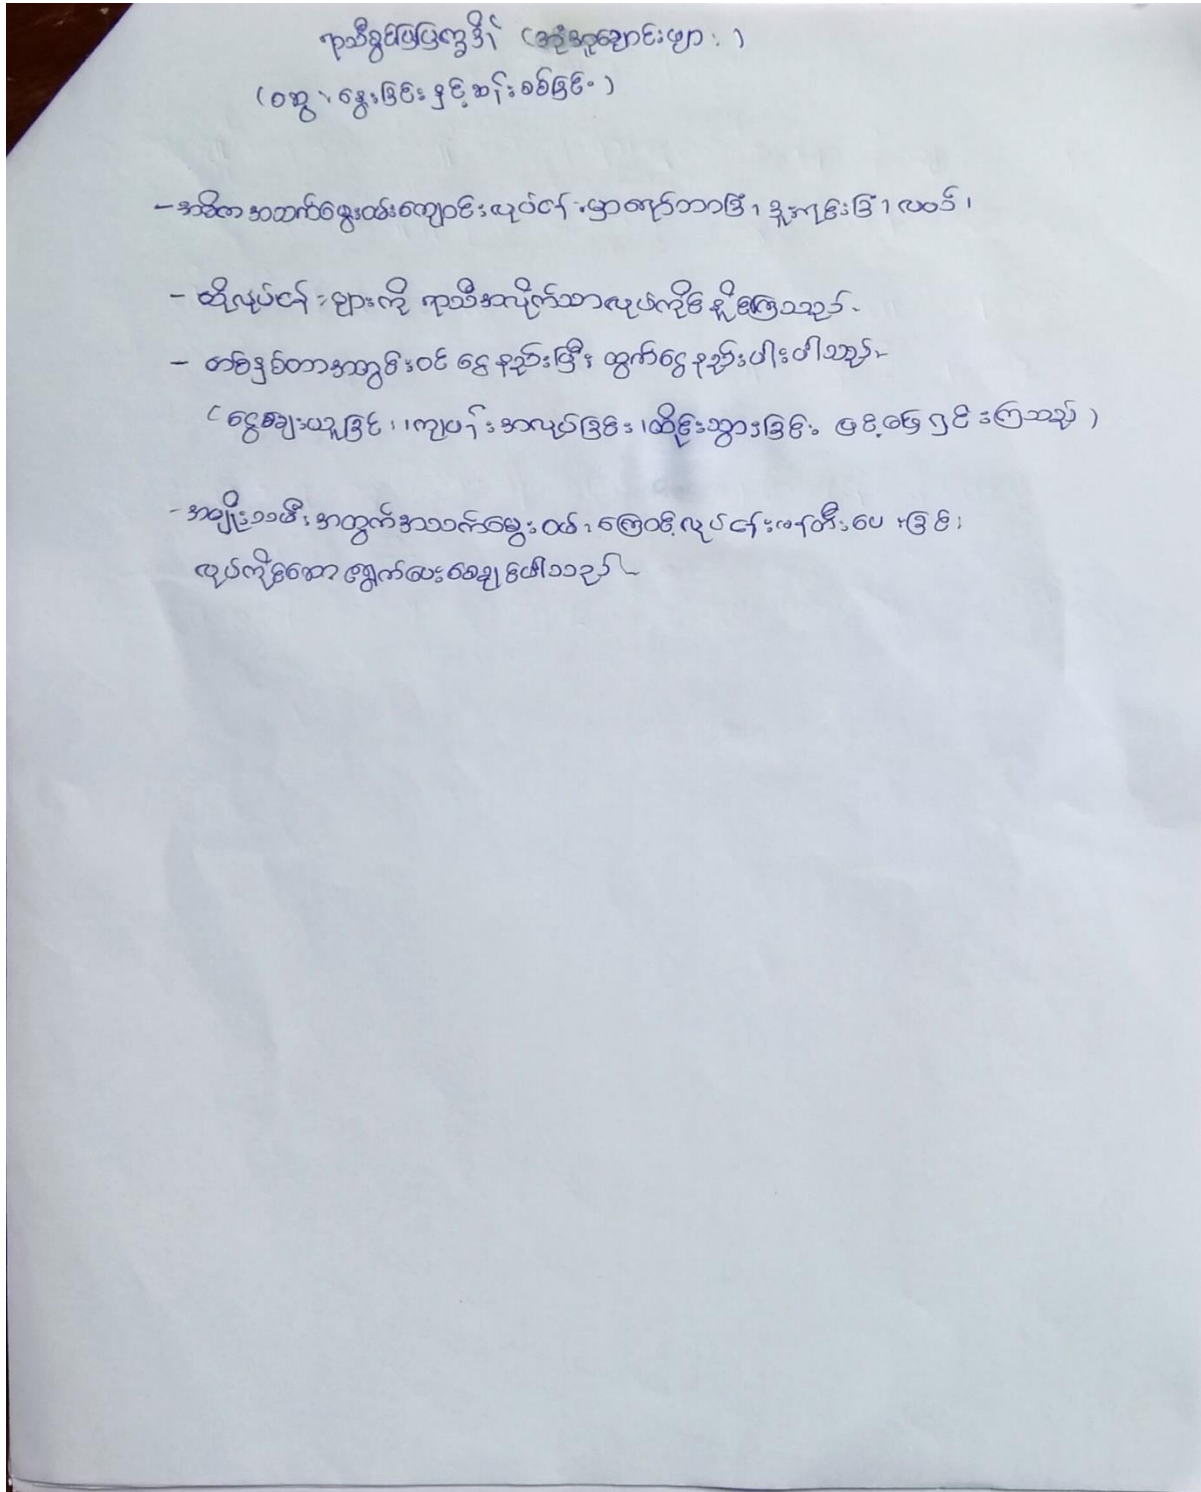 ရာသီခွင်ပြပြက္ခဒိန် (အုံအုချောင်းဖျား)
(ဝဆွေးနွေးခြင်းနှင့်ဆန်းစစ်ခြင်း)
- အဓိက အသက်မွေးဝမ်းကျောင်းလုပ်ငန်းမှာ ရော်ဘာခြံ၊ ဒူးရင်းခြံ၊
- ထိုလုပ်ငန်းများကို ရာသီအလိုက်သာလုပ်ကိုင်နိုင်ကြသည်။
- တစ်နှစ်တာအတွင်းဝင်ငွေနည်းပြီး ထွက်ငွေနည်းပါးပါသည်။
(ငွေချေးယူခြင်း၊ ကျပန်းအလုပ်ခြင်း၊ ထိုင်းသွားခြင်း ဖြင့်ဖြေရှင်းကြသည်)
- အမျိုးသမီးအတွက်အသက်မွေးဝမ်းကြောင့်လုပ်ငန်းဖန်တီးပေးခြင်း
လုပ်ကိုင်သော ပေးစေချင်ပါသည်။